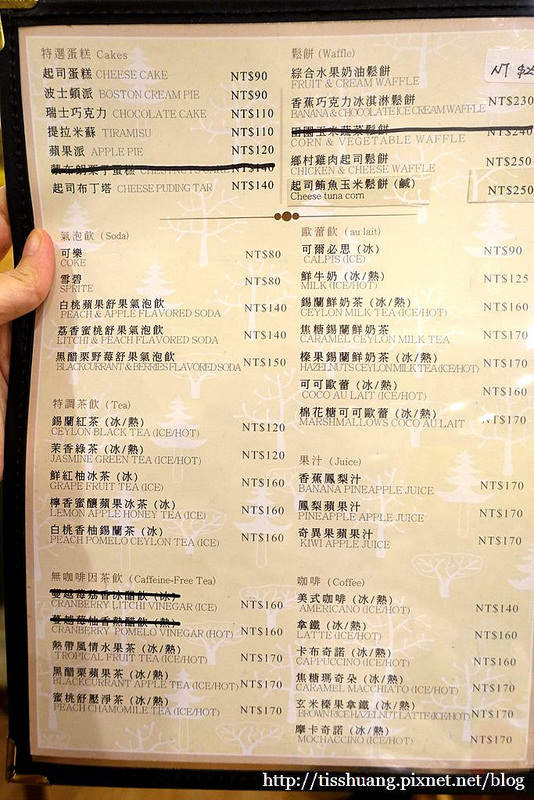 特選蛋糕 Cakes
起司蛋糕 CHEESE CAKE NT$90
波士頓派 BOSTON CREAM PIE NT$90
瑞士巧克力 CHOCOLATE CAKE NT$110
提拉米蘇 TIRAMISU NT$110
蘋果派 APPLE PIE NT$120
蒙布朗栗子蛋糕 CHESTNUTS CAKE NT$140
起司布丁塔 CHEESE PUDING TAR NT$140
鬆餅 (Waffle)
NT
綜合水果奶油鬆餅
FRUIT & CREAM WAFFLE
香蕉巧克力冰淇淋鬆餅 NT$230
BANANA & CHOCOLATE ICE CREAM WAFFLE
田園玉米蔬菜鬆餅 NT$240
CORN & VEGETABLE WAFFLE
鄉村雞肉起司鬆餅 NT$250
CHICKEN & CHEESE WAFFLE
起司鮪魚玉米鬆餅 (鹹) NT$250
Cheese tuna corn
氣泡飲 (Soda)
可樂 NT$80
COKE
雪碧 NT$80
SPRITE
白桃蘋果舒果氣泡飲 NT$140
PEACH & APPLE FLAVORED SODA
荔香蜜桃舒果氣泡飲 NT$140
LITCHI & PEACH FLAVORED SODA
黑醋栗野莓舒果氣泡飲 NT$150
BLACKCURRANT & BERRIES FLAVORED SODA
歐蕾飲 (au lait)
可爾必思 (冰) NT$90
CALPIS (ICE)
鮮牛奶 (冰/熱) NT$125
MILK (ICE/HOT)
錫蘭鮮奶茶 (冰/熱) NT$160
CEYLON MILK TEA (ICE/HOT)
焦糖錫蘭鮮奶茶 NT$170
CARAMEL CEYLON MILK TEA
榛果錫蘭鮮奶茶 (冰/熱) NT$170
HAZELNUTS CEYLON MILK TEA (ICE/HOT)
可可歐蕾 (冰/熱) NT$160
COCO AU LAIT (ICE/HOT)
棉花糖可可歐蕾 (冰/熱) NT$170
MARSHMALLOWS COCO AU LAIT
特調茶飲 (Tea)
錫蘭紅茶 (冰/熱) NT$120
CEYLON BLACK TEA (ICE/HOT)
茉香綠茶 (冰/熱) NT$120
JASMINE GREEN TEA (ICE/HOT)
鮮紅柚冰茶 (冰) NT$160
GRAPE FRUIT TEA (ICE)
檸香蜜釀蘋果冰茶 (冰) NT$160
LEMON APPLE HONEY TEA (ICE)
白桃香柚錫蘭茶 (冰) NT$160
PEACH POMELO CEYLON TEA (ICE)
果汁 (Juice)
香蕉鳳梨汁 NT$170
BANANA PINEAPPLE JUICE
鳳梨蘋果汁 NT$170
PINEAPPLE APPLE JUICE
奇異果蘋果汁 NT$170
KIWI APPLE JUICE
無咖啡因茶飲 (Caffeine-Free Tea)
蔓越莓荔香冰醋飲 (冰) NT$160
CRANBERRY LITCHI VINEGAR (ICE)
蔓越莓柚香熱醋飲 (熱) NT$160
CRANBERRY POMELO VINEGAR (HOT)
熱帶風情水果茶 (冰/熱) NT$170
TROPICAL FRUIT TEA (ICE/HOT)
黑醋栗蘋果茶 (冰/熱) NT$170
BLACKCURRANT APPLE TEA (ICE/HOT)
蜜桃舒壓淨茶 (冰/熱) NT$170
PEACH CHAMOMILE TEA (ICE/HOT)
咖啡 (Coffee)
美式咖啡 (冰/熱) NT$140
AMERICANO (ICE/HOT)
拿鐵 (冰/熱) NT$160
LATTE (ICE/HOT)
卡布奇諾 (冰/熱) NT$160
CAPPUCCINO (ICE/HOT)
焦糖瑪奇朵 (冰/熱) NT$170
CARAMEL MACCHIATO (ICE/HOT)
玄米榛果拿鐵 (冰/熱) NT$170
BROWN RICE HAZELNUT LATTE (ICE/HOT)
摩卡奇諾 (冰/熱) NT$170
MOCHACCINO (ICE/HOT)
http://tisshuang.pixnet.net/blog